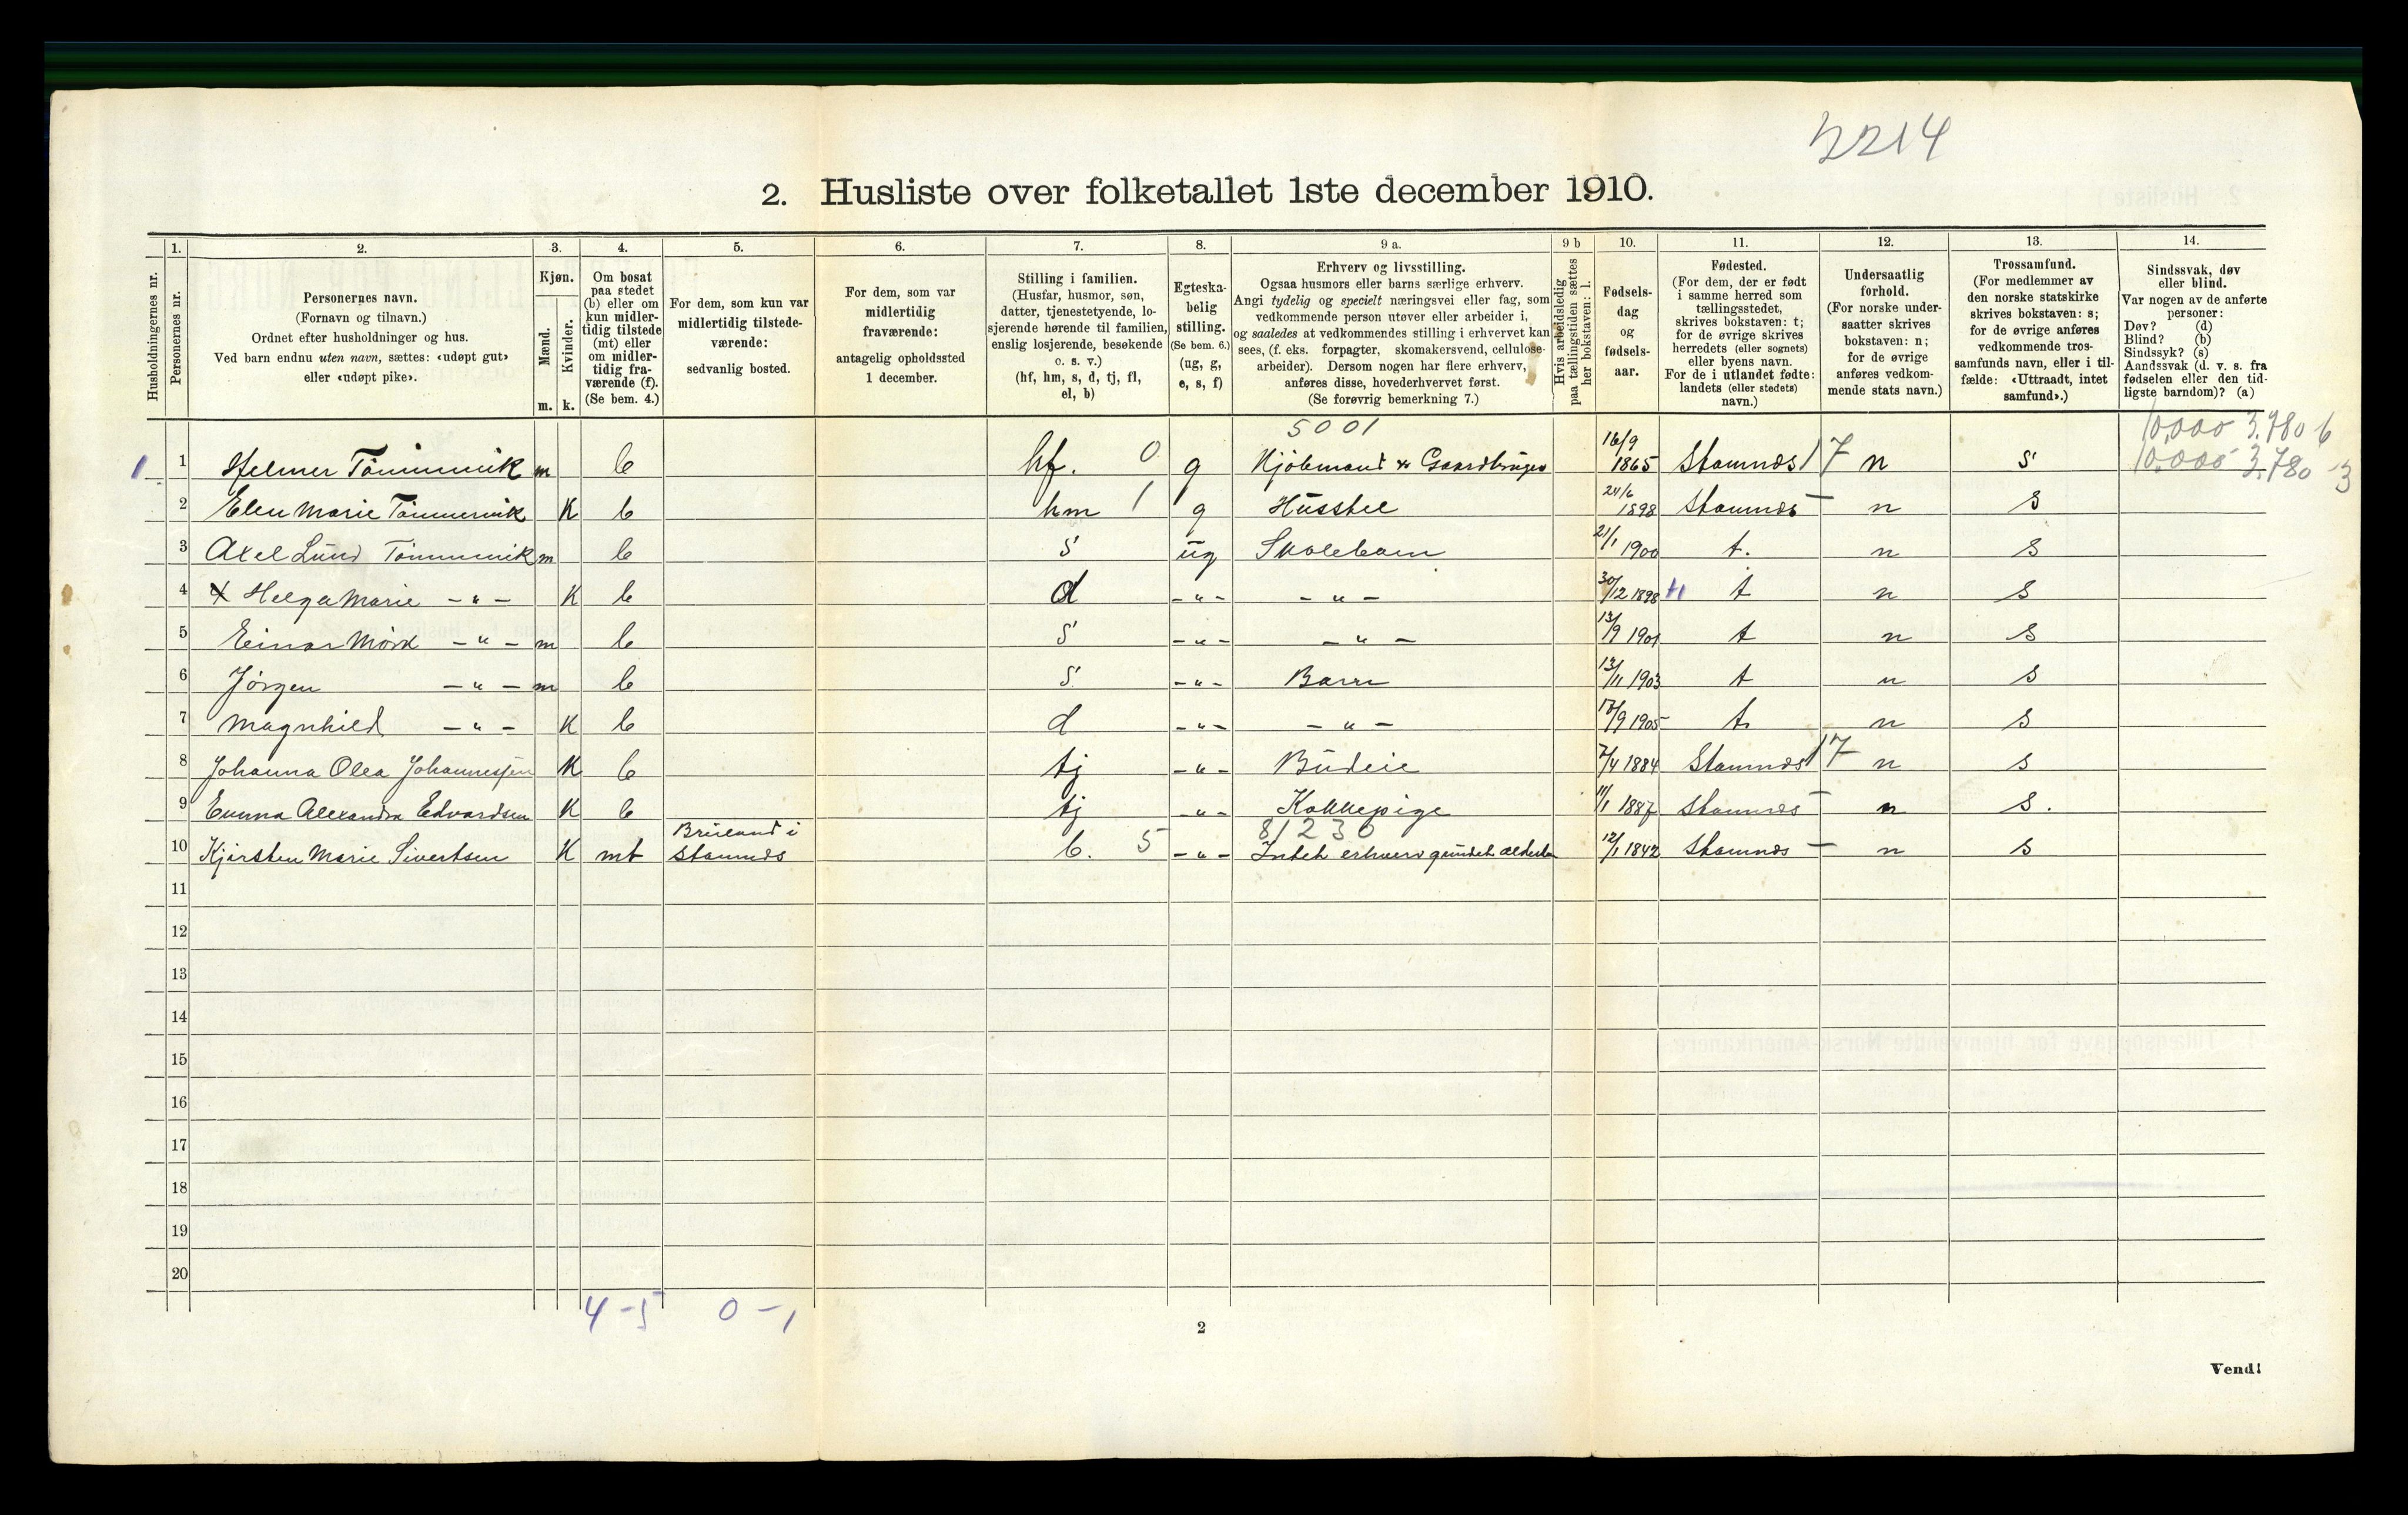 2214
2. Husliste over folketallet 1ste december 1910.
1. 2. 3. 4. 5. 6. 7. 8. 9 a. 9 b 10. 11. 12. 13. 14.
Husholdningernes nr.
Personernes nr.
Personernes navn.
(Fornavn og tilnavn.)
Ordnet efter husholdninger og hus.
Ved barn endnu uten navn, sættes: «udøpt gut»
eller «udøpt pike».
Kjøn.
Mænd.
Kvinder.
m. k.
Om bosat
paa stedet
(b) eller om
kun midler-
tidig tilstede
(mt) eller
om midler-
tidig fra-
værende (f).
(Se bem. 4.)
For dem, som kun var
midlertidig tilstede-
værende:
sedvanlig bosted.
For dem, som var
midlertidig
fraværende:
antagelig opholdssted
1 december.
Stilling i familien.
(Husfar, husmor, søn,
datter, tjenestetyende, lo-
sjerende hørende til familien,
enslig losjerende, besøkende
o. s. v.)
(hf, hm, s, d, tj, fl,
el, b)
Egteska-
belig
stilling.
(Se bem. 6.)
(ug, g,
e, s, f)
Erhverv og livsstilling.
Ogsaa husmors eller barns særlige erhverv.
Angi tydelig og specielt næringsvei eller fag, som
vedkommende person utøver eller arbeider i,
og saaledes at vedkommendes stilling i erhvervet kan
sees, (f. eks. forpagter, skomakersvend, cellulose-
arbeider). Dersom nogen har flere erhverv,
anføres disse, hovederhvervet først.
(Se forøvrig bemerkning 7.)
Hvis arbeidsledig
paa tællingstiden sættes
her bokstaven: l.
Fødsels-
dag
og
fødsels-
aar.
Fødested.
(For dem, der er født
i samme herred som
tællingsstedet,
skrives bokstaven: t;
for de øvrige skrives
herredets (eller sognets)
eller byens navn.
For de i utlandet fødte:
landets (eller stedets)
navn.)
Undersaatlig
forhold.
(For norske under-
saatter skrives
bokstaven: n;
for de øvrige
anføres vedkom-
mende stats navn.)
Trossamfund.
(For medlemmer av
den norske statskirke
skrives bokstaven: s;
for de øvrige anføres
vedkommende tros-
samfunds navn, eller i til-
fælde: «Uttraadt, intet
samfund».)
Sindssvak, døv
eller blind.
Var nogen av de anførte
personer:
Døv? (d)
Blind? (b)
Sindssyk? (s)
Aandssvak (d. v. s. fra
fødselen eller den tid-
ligste barndom)? (a)
5001 10,000 3,780 6
1 1 Helmer Tömmervik m b hf. 0 g Kjöbmand & Gaardbruger 16/9 1865 Stamnæs 17 n s 10,000 3,780 -3
2 Elen Marie Tömmervik K b hm 1 g Husstel 24/6 1898 Stamnæs - n s
3 Axel Lund Tömmervik m b s ug Skolebarn 21/1 1900 t. n s
4 x Helga Marie - " - K b d - " - - " - 30/12 1898 t n s
5 Einar Mörk - " - m b s - " - - " - 13/9 1901 t n s
6 Jörgen - " - m b s - " - Barn 13/11 1903 t n s
7 Magnhild - " - K b d - " - - " - 17/9 1905 t. n s
8 Johanna Olea Johannessen K b tj - " - Budeie 7/4 1884 Stamnæs 17 n s
9 Emma Alexandra Edvardsen K b tj - " - Kokkepige 11/1 1887 Stamnæs - n s.
81230
10 Kjersten Marie Sivertsen K mt Breiland i Stamnæs b. 5 - " - Intet erhverv 12/1 1842 Stamnæs - n s
11
12
13
14
15
16
17
18
19
20
4 - 5 0 - 1
2
Vend!